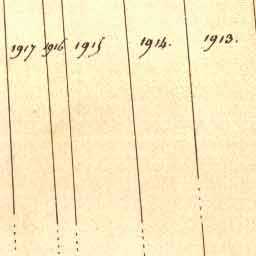 1917 1916 1915 1914. 1913.